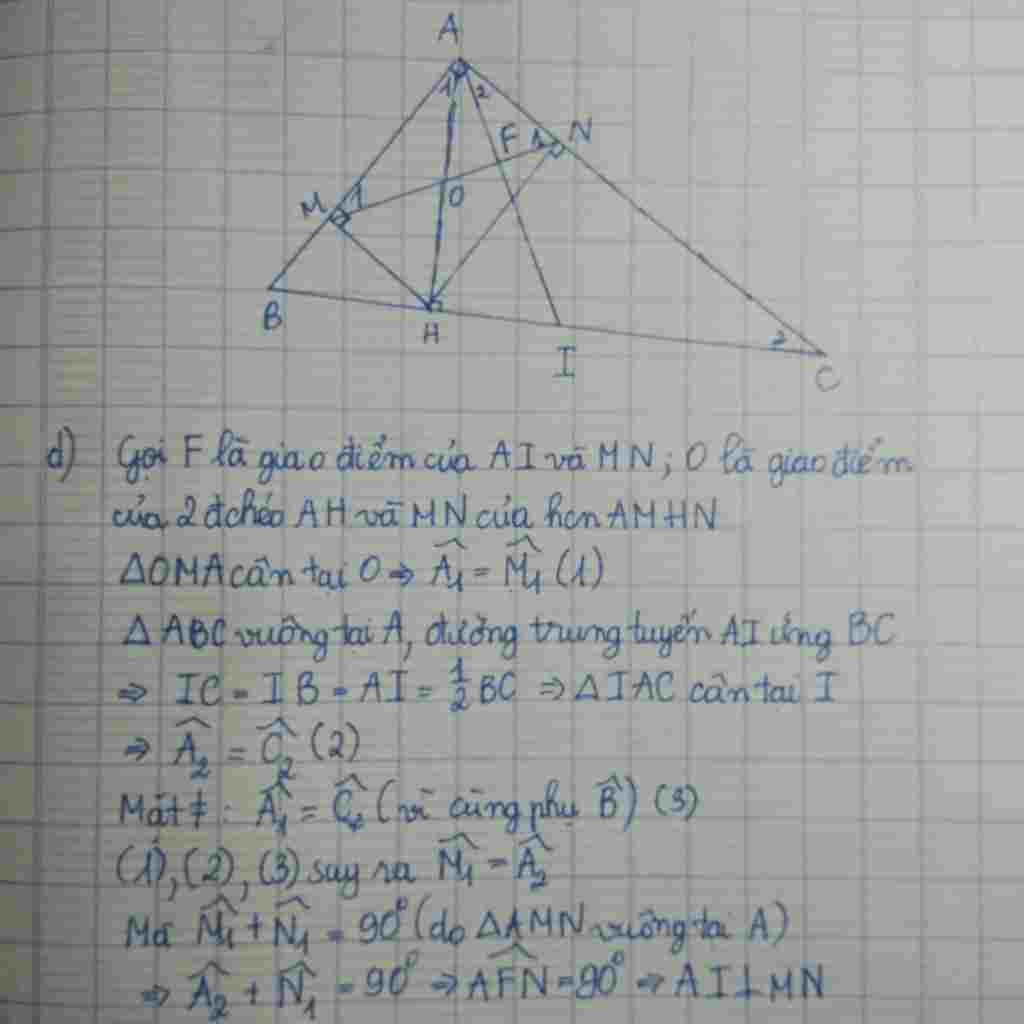 A
1 2
F 1 N
M 1 O
B
H
I
2
C
d) Gọi F là giao điểm của AI và MN; O là giao điểm
của 2 đchéo AH và MN của hcn AMHN
△OMA cân tại O ⇒ Â₁ = M̂₁ (1)
△ABC vuông tại A, đường trung tuyến AI ứng BC
⇒ IC = IB = AI = 1/2 BC ⇒ △IAC cân tại I
⇒ Â₂ = Ĉ₂ (2)
Mặt ≠: Â₁ = Ĉ₂ (vì cùng phụ B̂) (3)
(1), (2), (3) suy ra M̂₁ = Â₂
Mà M̂₁ + N̂₁ = 90° (do △AMN vuông tại A)
⇒ Â₂ + N̂₁ = 90° ⇒ AF̂N = 90° ⇒ AI ⊥ MN